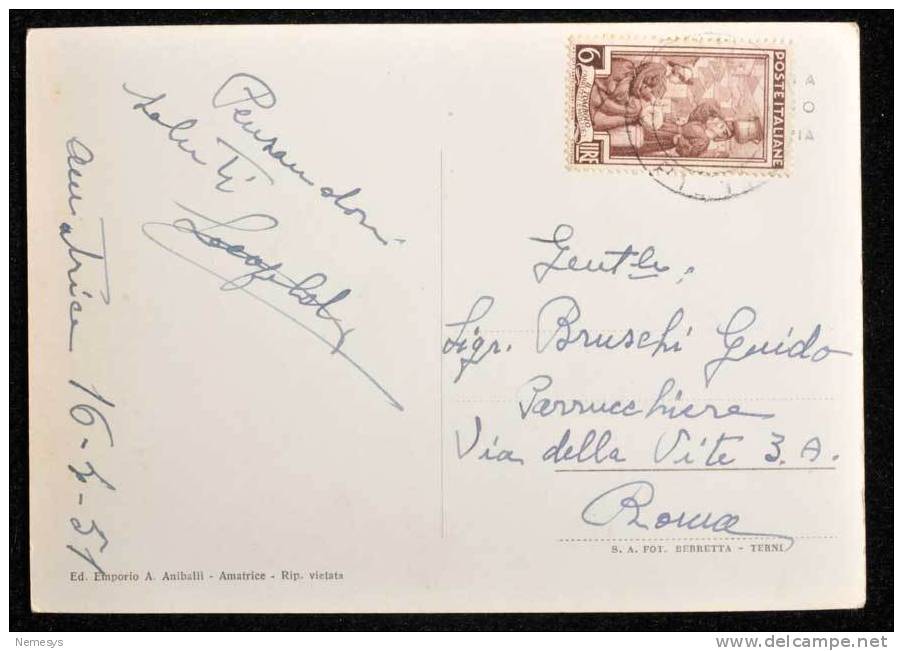 Pensandovi
saluti
Amatrice 16-X-51
POSTE ITALIANE
6
LIRE
Gent.le
Sigr. Bruschi Guido
Parrucchiere
Via della Vite 3. A.
Roma
S. A. FOT. BERRETTA - TERNI
Ed. Emporio A. Aniballi - Amatrice - Rip. vietata
Nemesys
www.delcampe.net